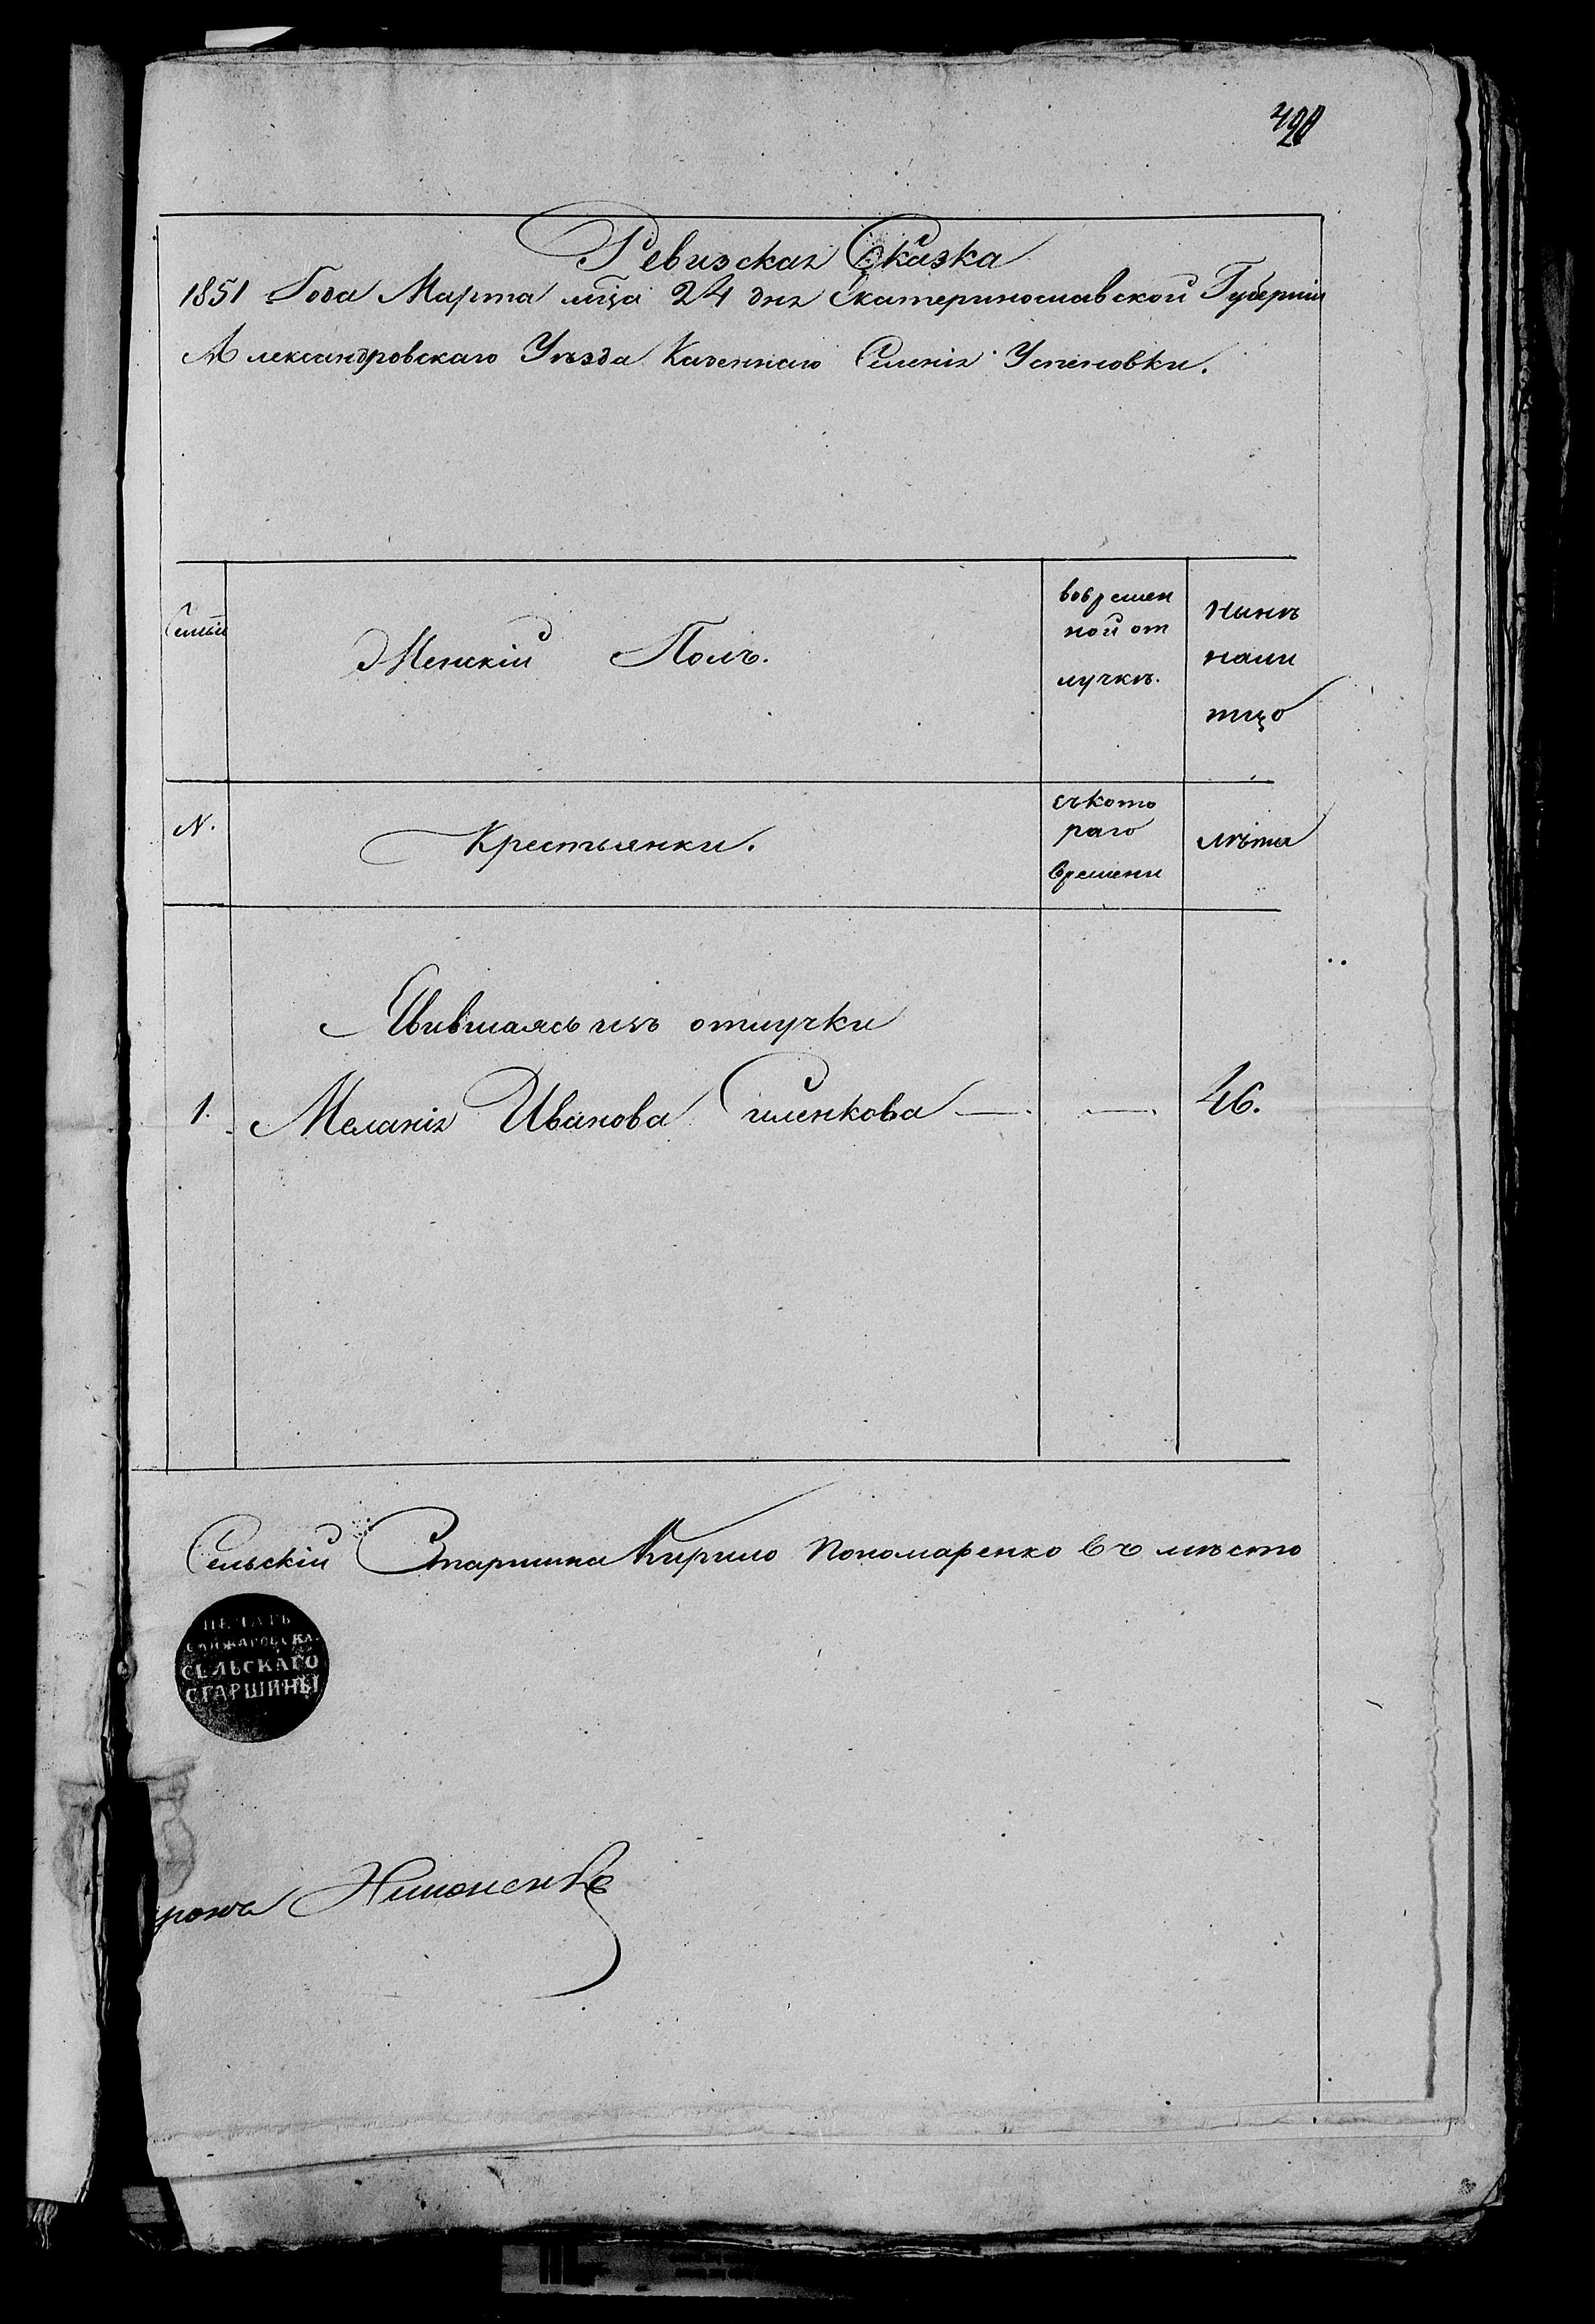 420
Ревизская Сказка
1851 Года Марта мца 24 дня Екатеринославской Губернии
Александровскаго Уезда Казеннаго Селенія Успеновки.
Семьи
Женскій Полъ.
вовремен
ной от
лучкѣ.
Нынѣ
нали
тцо
N.
Крестьянки.
съкото
раго
времени
лѣта
Явившаясь изъ отлучки
1. Меланія Иванова Гиленкова — — 46.
Сельскій Старшина Кирило Пономаренко въ место
ПЕЧАТЬ
СЕЛЬСКАГО
СТАРШИНЫ